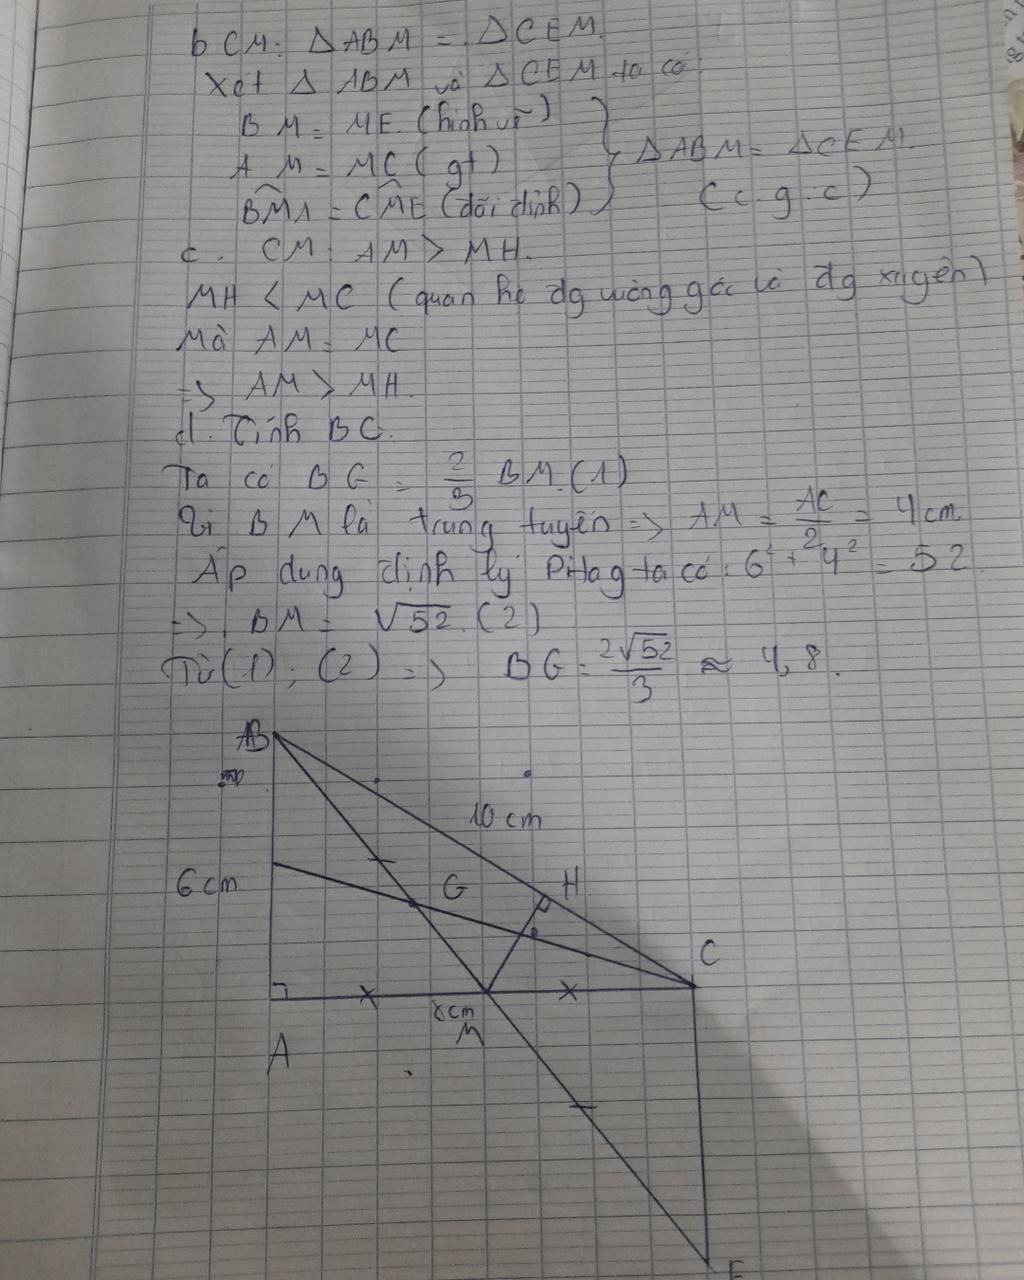 b CM: Δ ABM = ΔCEM.
Xét Δ ABM và ΔCEM ta có
BM = ME. (hình vẽ)
AM = MC (gt)
Δ ABM = ΔCEM.
BMA = CME (đối đỉnh)
(c.g.c)
c. CM: AM > MH.
MH < MC (quan hệ đg vuông góc và đg xuyên)
Mà AM = MC
=> AM > MH.
d. Tính BG.
Ta có BG = 2/3 BM. (1)
Vì BM là trung tuyến => AM = AC/2 = 4cm.
Áp dụng định lý Pitag ta có: 6² + 4² = 52
=> BM = √52. (2)
Từ (1); (2) => BG = 2√52/3 ≈ 4,8.
B
10 cm
6 cm
G
H
C
cm
M
A
E